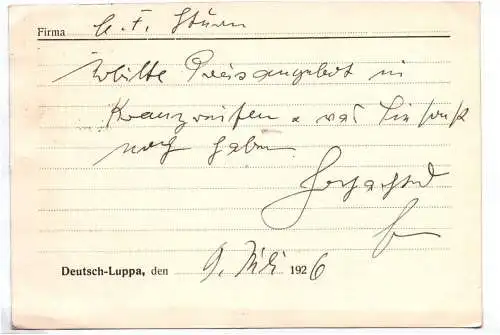 Firma C. F. Sturm
Erbitte Preisangebot in
Kranzreifen u. was Sie sonst
noch haben
Hochachtend
Deutsch-Luppa, den 9. Juli 1926